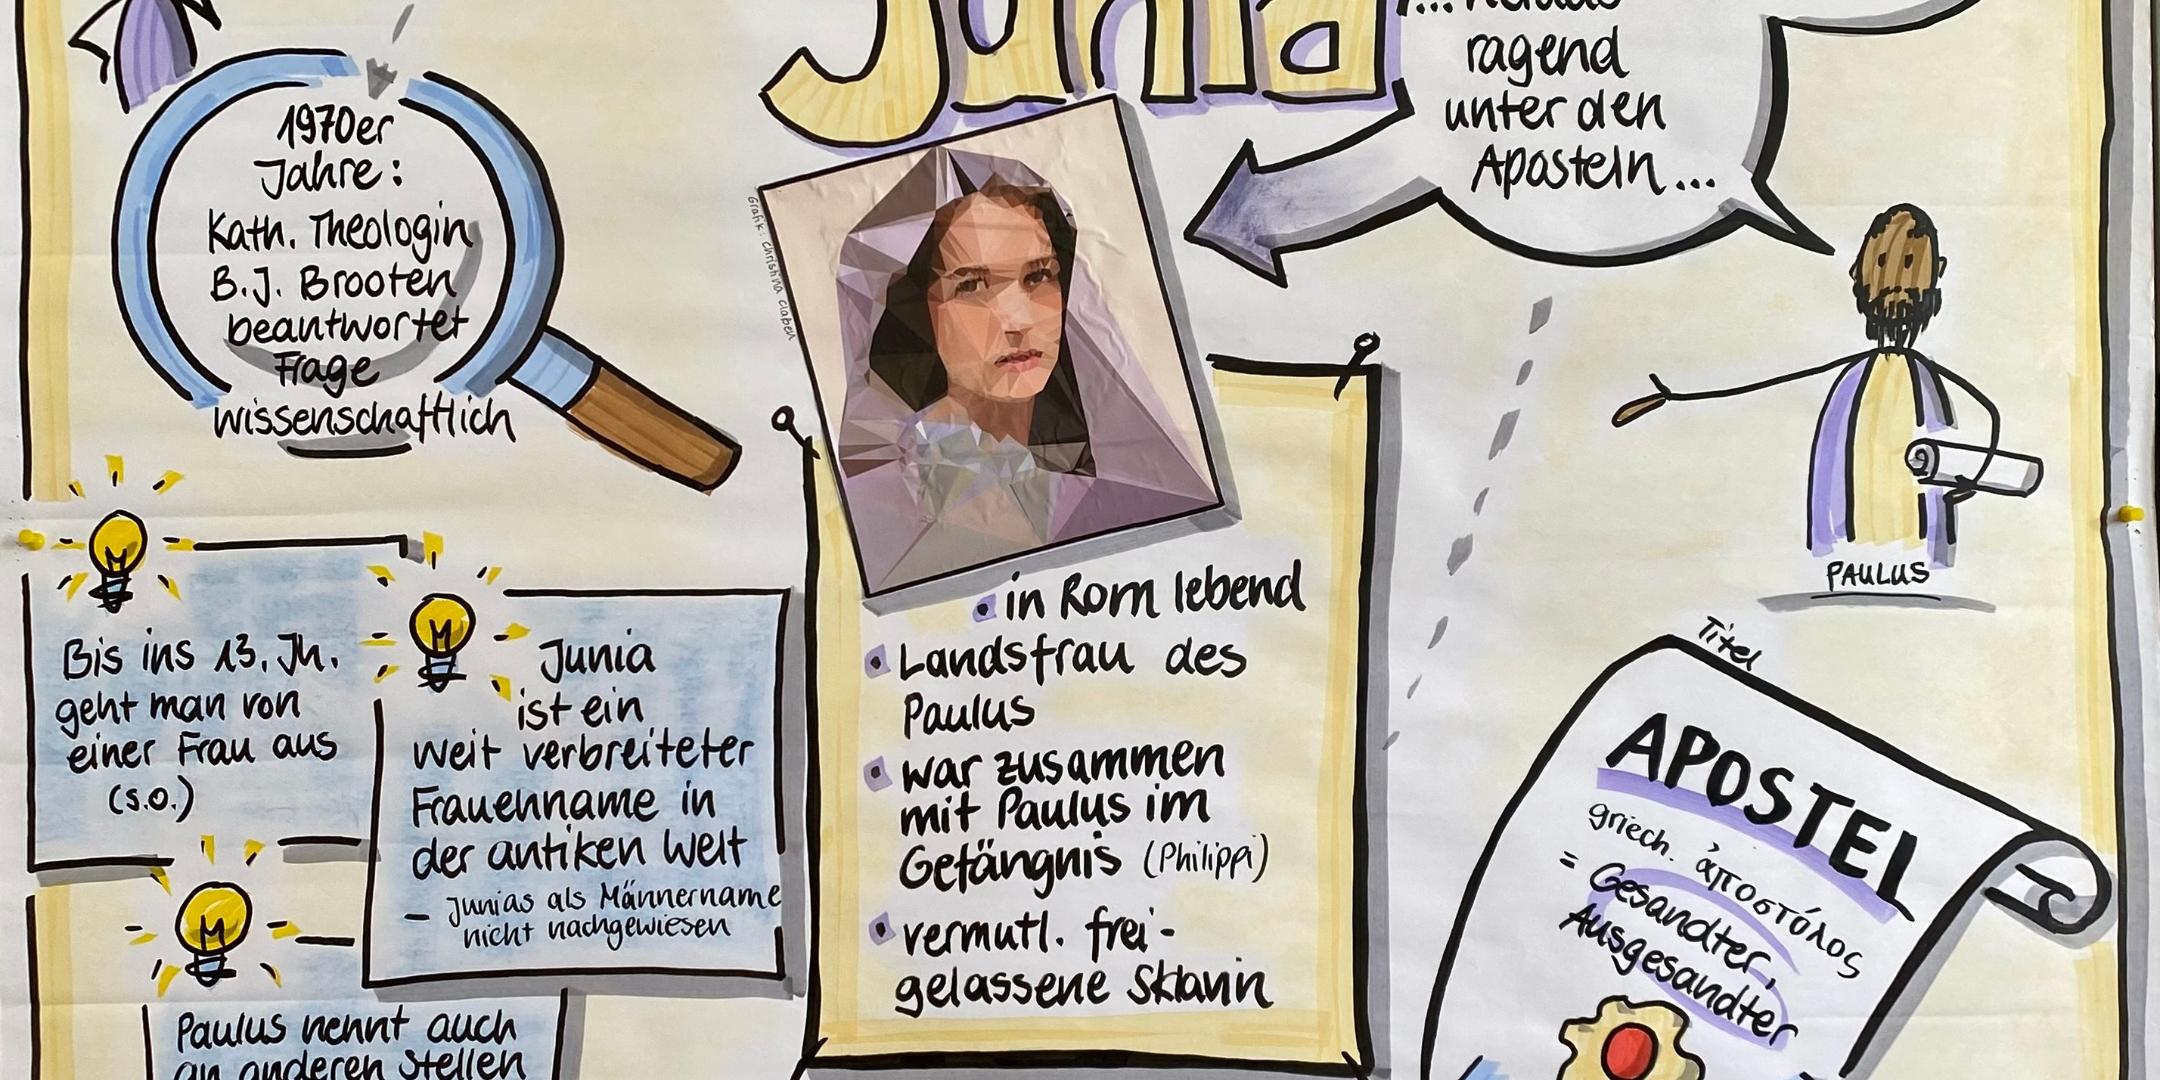 Junia
... heraus
ragend
unter den
Aposteln...
1970er
Jahre:
Kath. Theologin
B.J. Brooten
beantwortet
Frage
wissenschaftlich
Grafik: Christina Claßen
PAULUS
Bis ins 13. Jh.
geht man von
einer Frau aus
(s.o.)
Junia
ist ein
weit verbreiteter
Frauenname in
der antiken Welt
– Junias als Männername
nicht nachgewiesen
Paulus nennt auch
an anderen Stellen
• in Rom lebend
• Landsfrau des
Paulus
• war zusammen
mit Paulus im
Gefängnis (Philippi)
• vermutl. frei-
gelassene Sklavin
Titel
APOSTEL
griech. ἀποστόλος
= Gesandter,
Ausgesandter